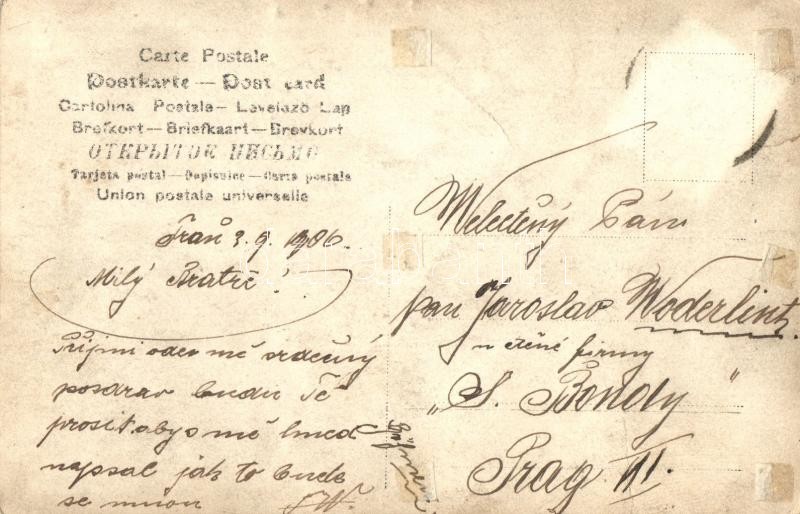 Carte Postale
Postkarte — Post card
Cartolina Postale — Levelező Lap
Brefkort — Briefkaart — Brevkort
ОТКРЫТОЕ ПИСЬМО
Tarjeta postal — Dopisnice — Carte postala
Union postale universelle
3. 9. 1906.
Milý Bratře!
Přijmi odemě srdečný
pozdrav budu Tě
prosit abys mě hned
napsal jak to bude
se mnou JW.
Welectěný Pán
pan Jaroslav Woderlint.
u ctěné firmy
"S. Bondy"
Prag III.